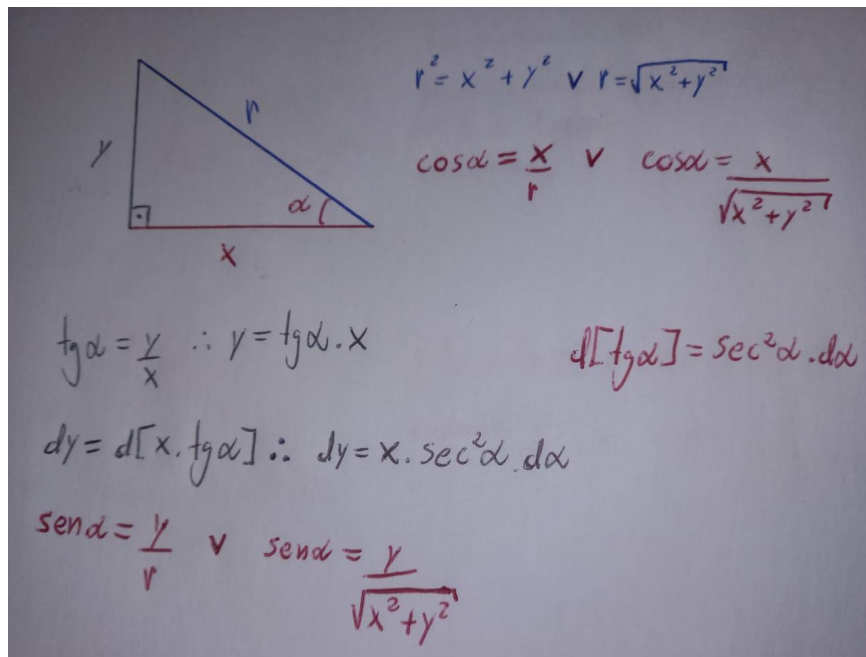 y
r
α
x
r² = x² + y² v r = √(x² + y²)
cosα = x/r v cosα = x/√(x² + y²)
tgα = y/x ∴ y = tgα . x
d[tgα] = sec²α . dα
dy = d[x . tgα] ∴ dy = x . sec²α . dα
senα = y/r v senα = y/√(x² + y²)